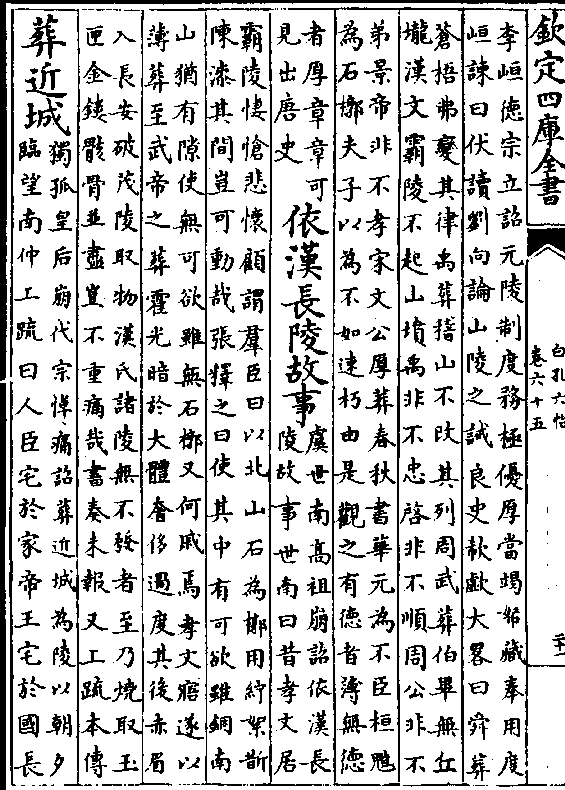 欽定四庫全書
白孔六帖
卷六十五
李峘德宗立詔元陵制度務極優厚當竭帑藏奉用度
峘諫曰伏讀劉向論山陵之誡良史歎歔大畧曰舜葬
蒼梧弗變其律禹葬稽山不攺其列周武葬伯畢無丘
壠漢文霸陵不起山墳禹非不忠啓非不順周公非不
弟景帝非不孝家文公厚葬春秋書華元為不臣桓魋
為石槨夫子以為不如速朽由是觀之有德者薄無德
者厚章章可
見出唐史
依漢長陵故事
虞世南高祖崩詔依漢長
陵故事世南曰昔孝文居
霸陵悽愴悲懷顧謂羣臣曰以北山石為槨用紵絮斮
陳漆其間豈可動哉張釋之曰使其中有可欲雖錮南
山猶有隙使無可欲雖無石槨又何戚焉孝文寤遂以
薄葬至武帝之葬霍光暗於大體奢侈過度其後赤眉
入長安破茂陵取物漢氏諸陵無不發者至乃燒取玉
匣金鏤骸骨並盡豈不重痛哉書奏未報又工疏本傳
葬近城
獨孤皇后崩代宗悼痛詔葬近城為陵以朝夕
臨望南仲工疏曰人臣宅於家帝王宅於國長